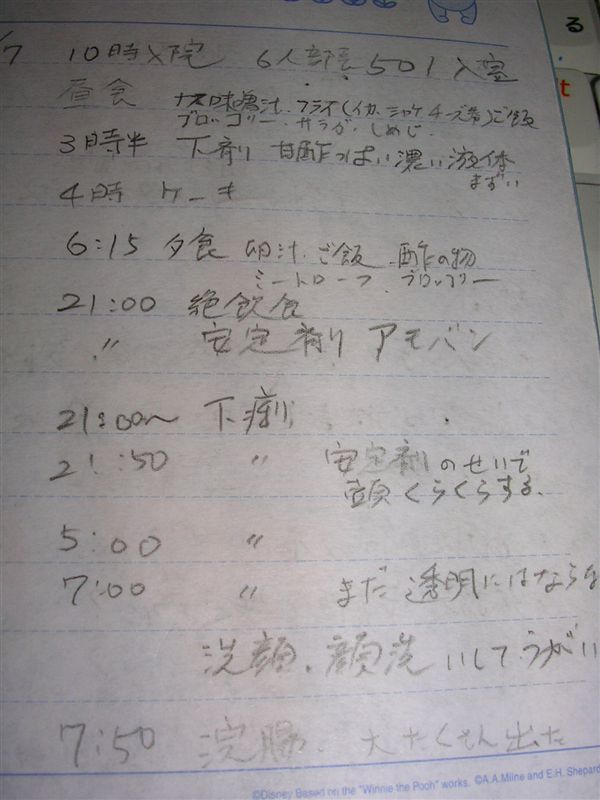 /7 10時入院 6人部屋501入室
昼食 ナス味噌汁、フライ(イカ、シャケ、チーズ等)ご飯
ブロッコリー、サラダ、しめじ
3時半 下剤 甘酢っぱい濃い液体
まずい
4時 ケーキ
6:15 夕食 卵汁、ご飯、酢の物
ミートローフ、ブロッコリー
21:00 絶飲食
〃 安定剤 アモバン
21:00〜 下痢
21:50 〃 安定剤のせいで
頭くらくらする。
5:00 〃
7:00 〃 まだ透明にはならな
洗顔、顔洗いして、うがい
7:50 浣腸、大たくさん出た
©Disney Based on the "Winnie the Pooh" works. ©A.A.Milne and E.H. Shepard
る
t